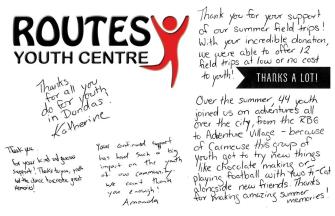 ROUTES
YOUTH CENTRE
Thanks
for all you
do for youth
in Dundas.
Katherine
Thank you
for your kind and generous
support! Thanks to you, youth
memories!
Your continued support
has had such a big
impact on the youth
of our community
we can't thank
you enough!
Amanda
Thank you for your support
of our summer field trips!
With your incredible donation,
we were able to offer 12
field trips at low or no cost
to youth!
THANKS A LOT!
Over the summer, 44 youth
joined us on adventures all
over the city, from the RBG
to Adventure Village - because
of Carmeuse this group of
youth got to try new things
like chocolate making or
playing football with two Ti-Cat
alongside new friends. Thanks
for making amazing summer
memories!